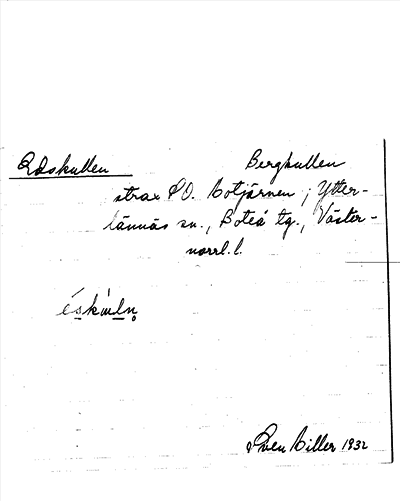 Edskullen Bergkullen
strax SO. Lotjärnen; Ytter-
lännäs sn., Boteå tg., Väster-
norrl. l.
Sven Liller 1932